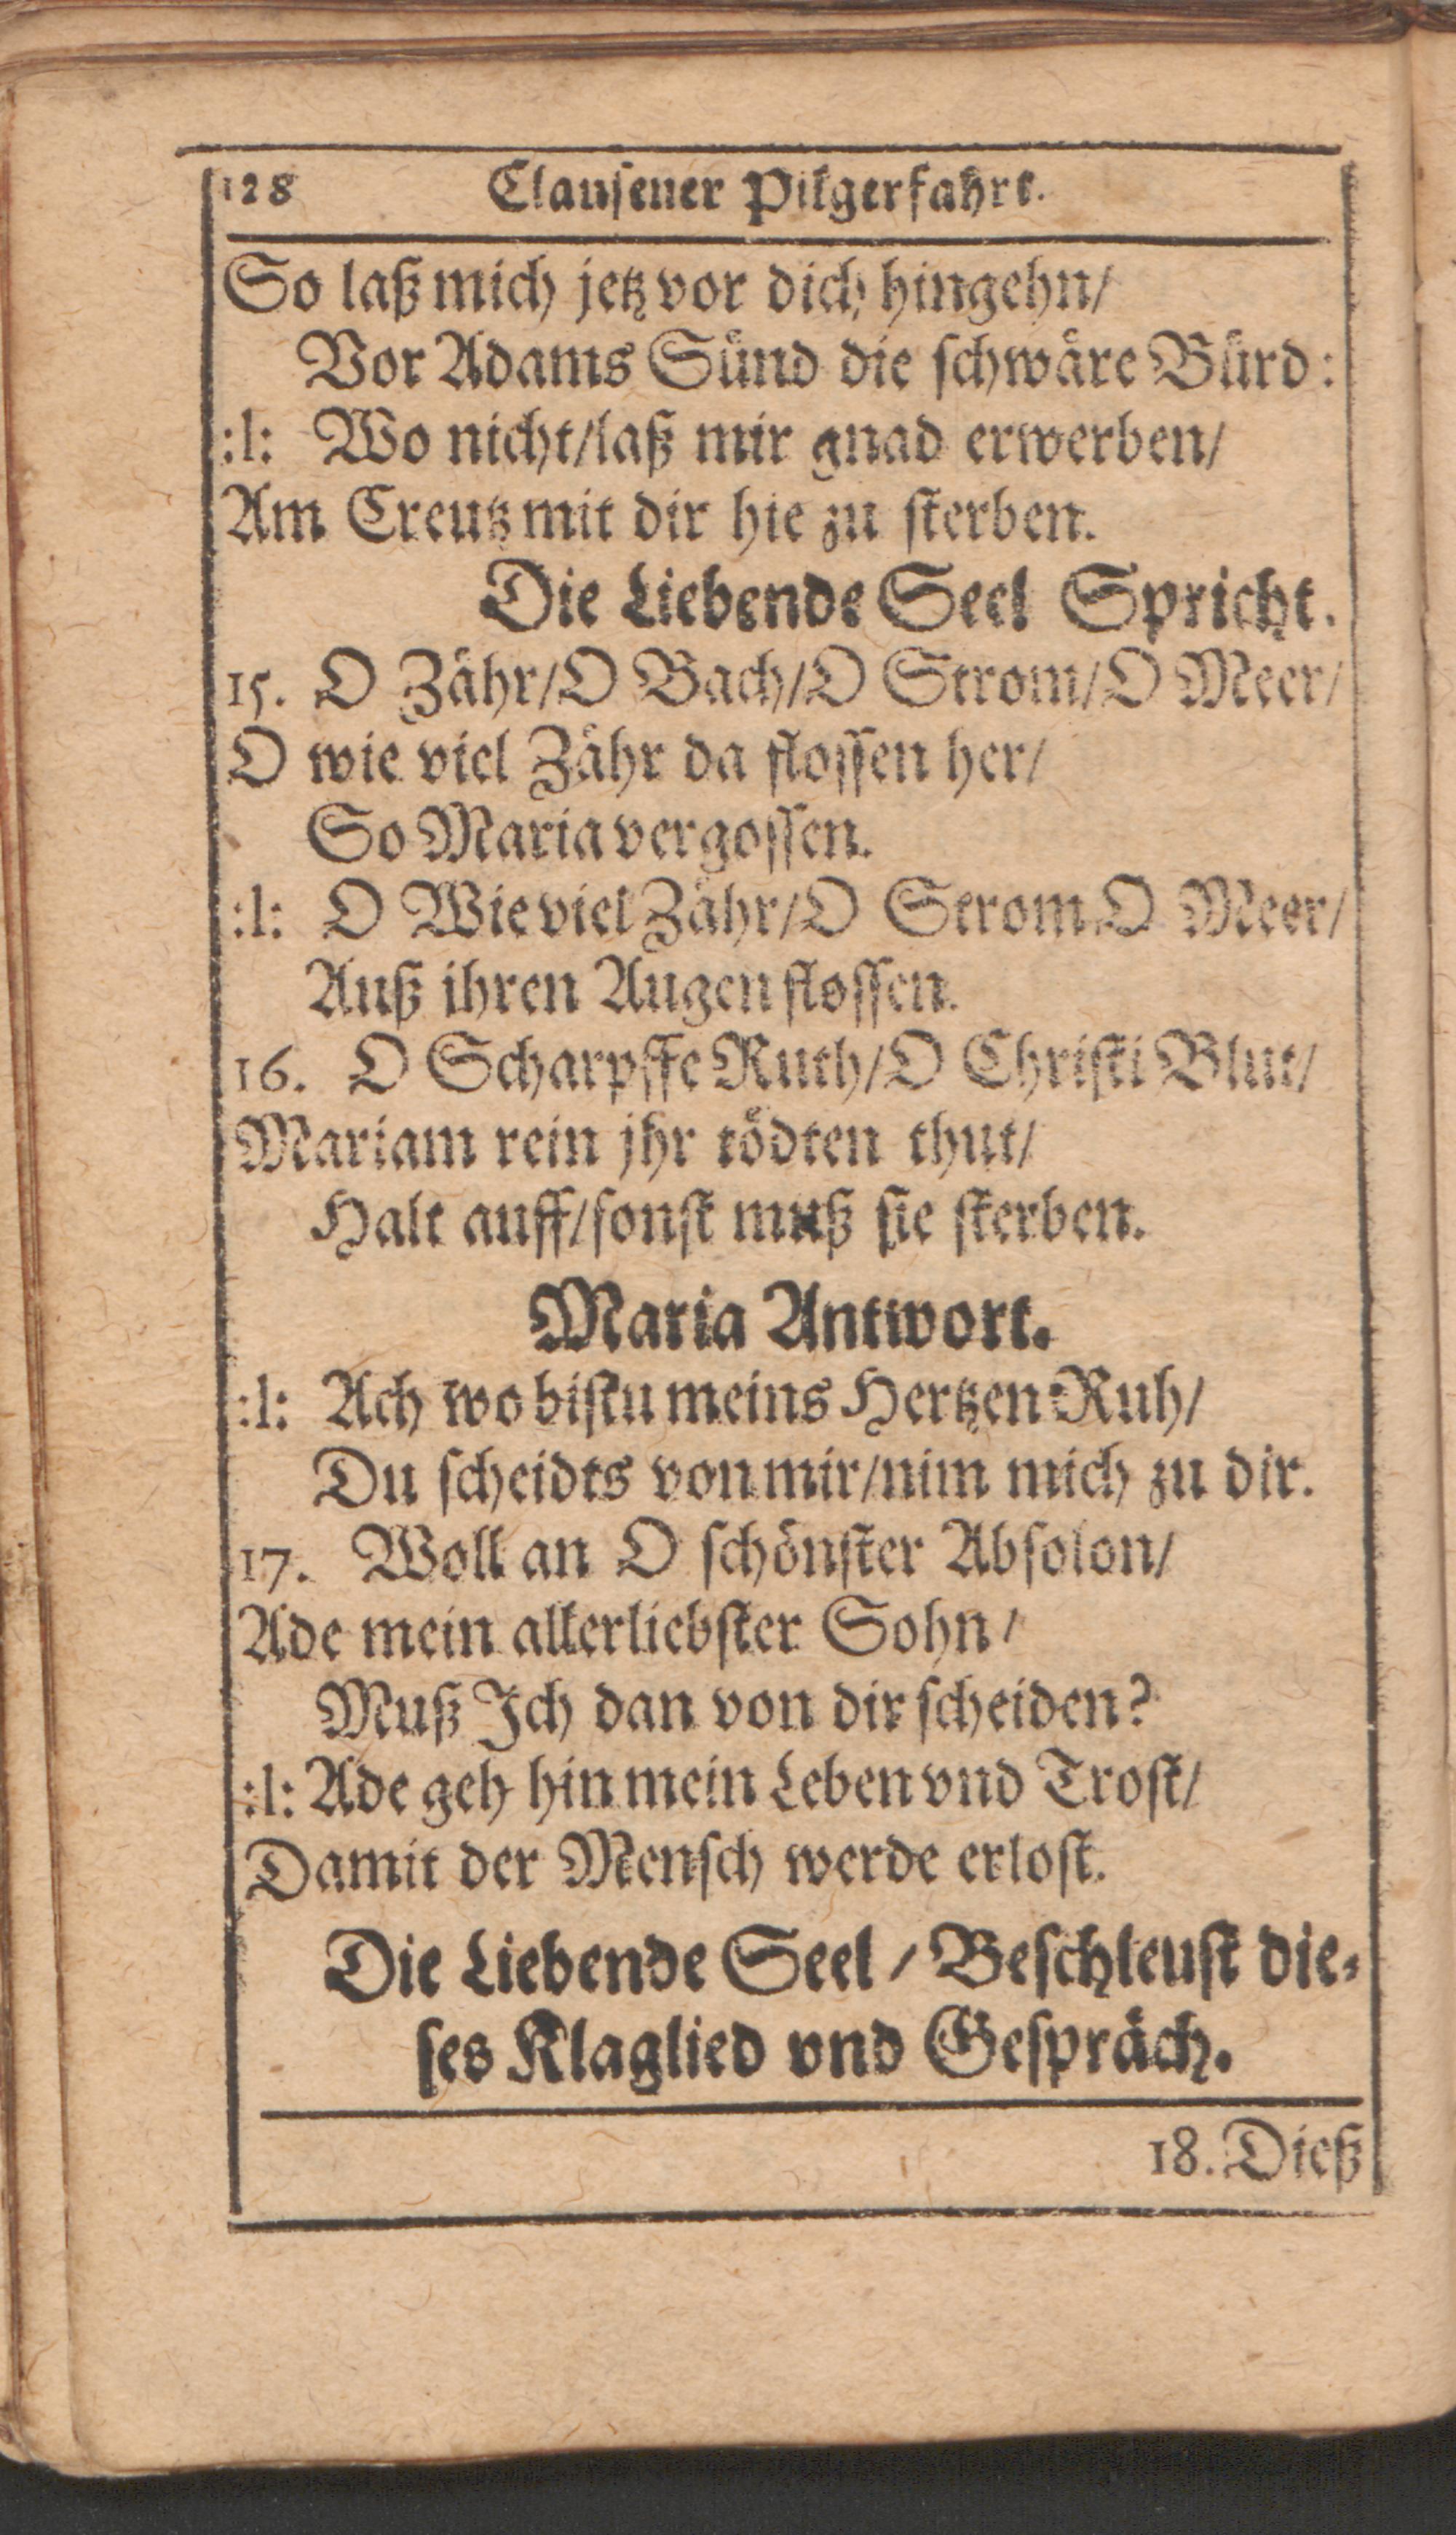 128 Clausener Pilgerfahrt.
So laß mich jetz vor dich hingehn/
Vor Adams Sünd die schwäre Bürd:
:l: Wo nicht/laß mir gnad erwerben/
Am Creutz mit dir hie zu sterben.
Die Liebende Seel Spricht.
15. O Zähr/O Bach/O Strom/O Meer/
O wie viel Zähr da flossen her/
So Maria vergossen.
:l: O Wie viel Zähr/O Strom O Meer/
Auß ihren Augen flossen.
16. O Scharpffe Ruth/O Christi Blut/
Mariam rein jhr tödten thut/
Halt auff/sonst muß sie sterben.
Maria Antwort.
:l: Ach wo bistu meins Hertzen Ruh/
Du scheidts von mir/nim mich zu dir.
17. Woll an O schönster Absolon/
Ade mein allerliebster Sohn/
Muß Jch dan von dir scheiden?
:l: Ade geh hin mein Leben vnd Trost/
Damit der Mensch werde erlost.
Die Liebende Seel/Beschleust die-
ses Klaglied vnd Gespräch.
18. Dieß